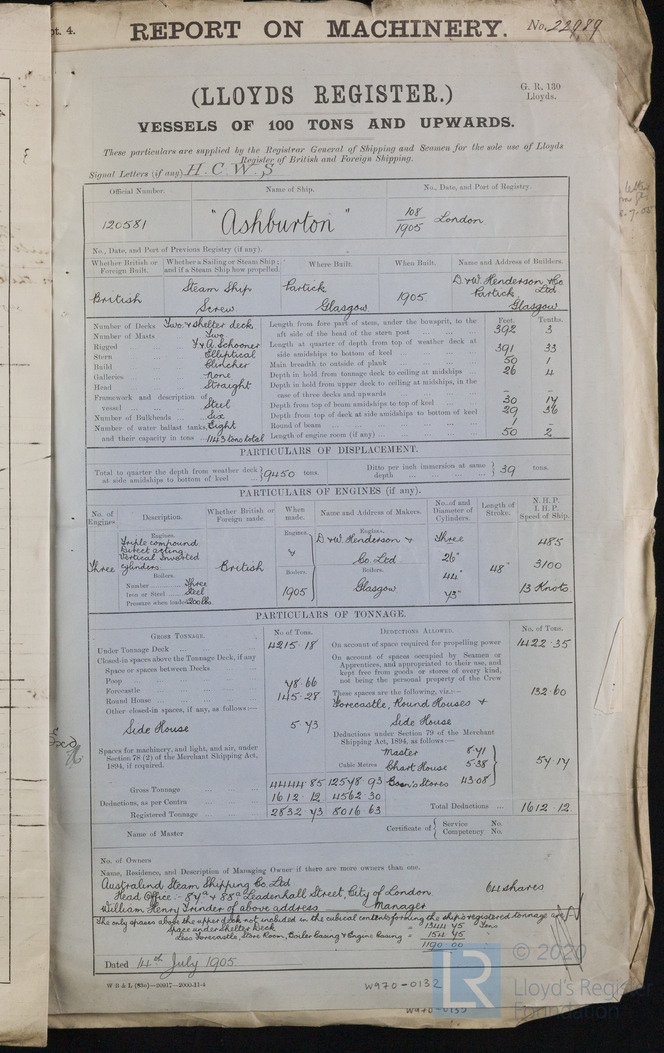 pt. 4.
REPORT ON MACHINERY. No. 22989
(LLOYDS REGISTER.)
G. R. 130
Lloyds.
VESSELS OF 100 TONS AND UPWARDS.
These particulars are supplied by the Registrar General of Shipping and Seamen for the sole use of Lloyds
Register of British and Foreign Shipping.
Signal Letters (if any) H. C. W. S
Official Number. Name of Ship. No., Date, and Port of Registry.
120581 "Ashburton" 108/1905 London
No., Date, and Port of Previous Registry (if any).
Whether British or Foreign Built. Whether a Sailing or Steam Ship; and if a Steam Ship how propelled. Where Built. When Built. Name and Address of Builders.
British Steam Ship Screw Partick Glasgow 1905 D & W. Henderson & Co Ltd Partick, Glasgow
Feet. Tenths.
Number of Decks Two & shelter deck
Number of Masts Two
Rigged F & A. Schooner
Stern Elliptical
Build Clincher
Galleries None
Head Straight
Framework and description of vessel Steel
Number of Bulkheads Six
Number of water ballast tanks, Eight
and their capacity in tons 1143 tons total
Length from fore part of stem, under the bowsprit, to the aft side of the head of the stern post 392 3
Length at quarter of depth from top of weather deck at side amidships to bottom of keel 391 33
Main breadth to outside of plank 50 1
Depth in hold from tonnage deck to ceiling at midships 26 4
Depth in hold from upper deck to ceiling at midships, in the case of three decks and upwards - -
Depth from top of beam amidships to top of keel 30 14
Depth from top of deck at side amidships to bottom of keel 29 36
Round of beam 1 -
Length of engine room (if any) 50 2
PARTICULARS OF DISPLACEMENT.
Total to quarter the depth from weather deck at side amidships to bottom of keel 9450 tons. Ditto per inch immersion at same depth 39 tons.
PARTICULARS OF ENGINES (if any).
No. of Engines. Description. Whether British or Foreign made. When made. Name and Address of Makers. No. of and Diameter of Cylinders. Length of Stroke. N. H. P. I. H. P. Speed of Ship.
Three
Engines.
Triple compound
Direct acting
Vertical Inverted
cylinders
Boilers.
Number Three
Iron or Steel Steel
Pressure when loaded 200 lbs.
British
Engines.
&
Boilers.
1905
Engines.
D & W. Henderson &
Co Ltd
Boilers.
Glasgow
Three
26"
44"
73"
48"
485
3100
13 Knots
PARTICULARS OF TONNAGE.
GROSS TONNAGE. No. of Tons.
Under Tonnage Deck 4215.18
Closed-in spaces above the Tonnage Deck, if any
Space or spaces between Decks
Poop 78.66
Forecastle
Round House 145.28
Other closed-in spaces, if any, as follows:—
Side House 5.73
Spaces for machinery, and light, and air, under
Section 78 (2) of the Merchant Shipping Act,
1894, if required.
Cubic Metres
Gross Tonnage 4444.85 12578.93
Deductions, as per Contra 1612.12 4562.30
Registered Tonnage 2832.73 8016.63
DEDUCTIONS ALLOWED. No. of Tons.
On account of space required for propelling power 1422.35
On account of spaces occupied by Seamen or
Apprentices, and appropriated to their use, and
kept free from goods or stores of every kind,
not being the personal property of the Crew
These spaces are the following, viz.:— 132.60
Forecastle, Round Houses &
Side House
Deductions under Section 79 of the Merchant
Shipping Act, 1894, as follows:—
Master 8.71
Chart House 5.38
Bosn's Stores 43.08
57.17
Total Deductions 1612.12
Name of Master Certificate of Service No. Competency No.
No. of Owners
Name, Residence, and Description of Managing Owner if there are more owners than one.
Australind Steam Shipping Co. Ltd 64 shares
Head Office:- 87a & 88a Leadenhall Street, City of London
William Henry Trinder of above address Manager
The only spaces above the upper deck not included in the cubical contents forming the ship's registered tonnage are:-
Space under Shelter Deck = 1344.75 Tons
Less Forecastle, Store Room, Boiler Casing & Engine Casing = 154.75 "
1190.00
Dated 14th July 1905
W970-0132
© 2020
LR
Lloyd's Register
Foundation